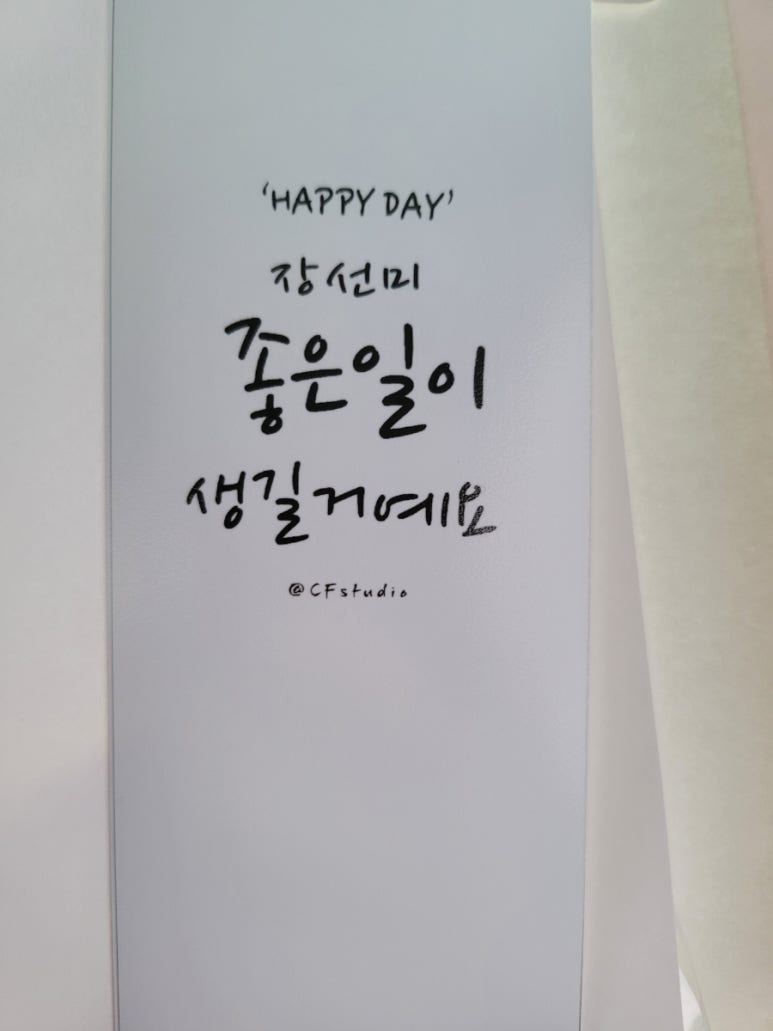 'HAPPY DAY'
장선미
좋은일이
생길거예요
@CFstudio